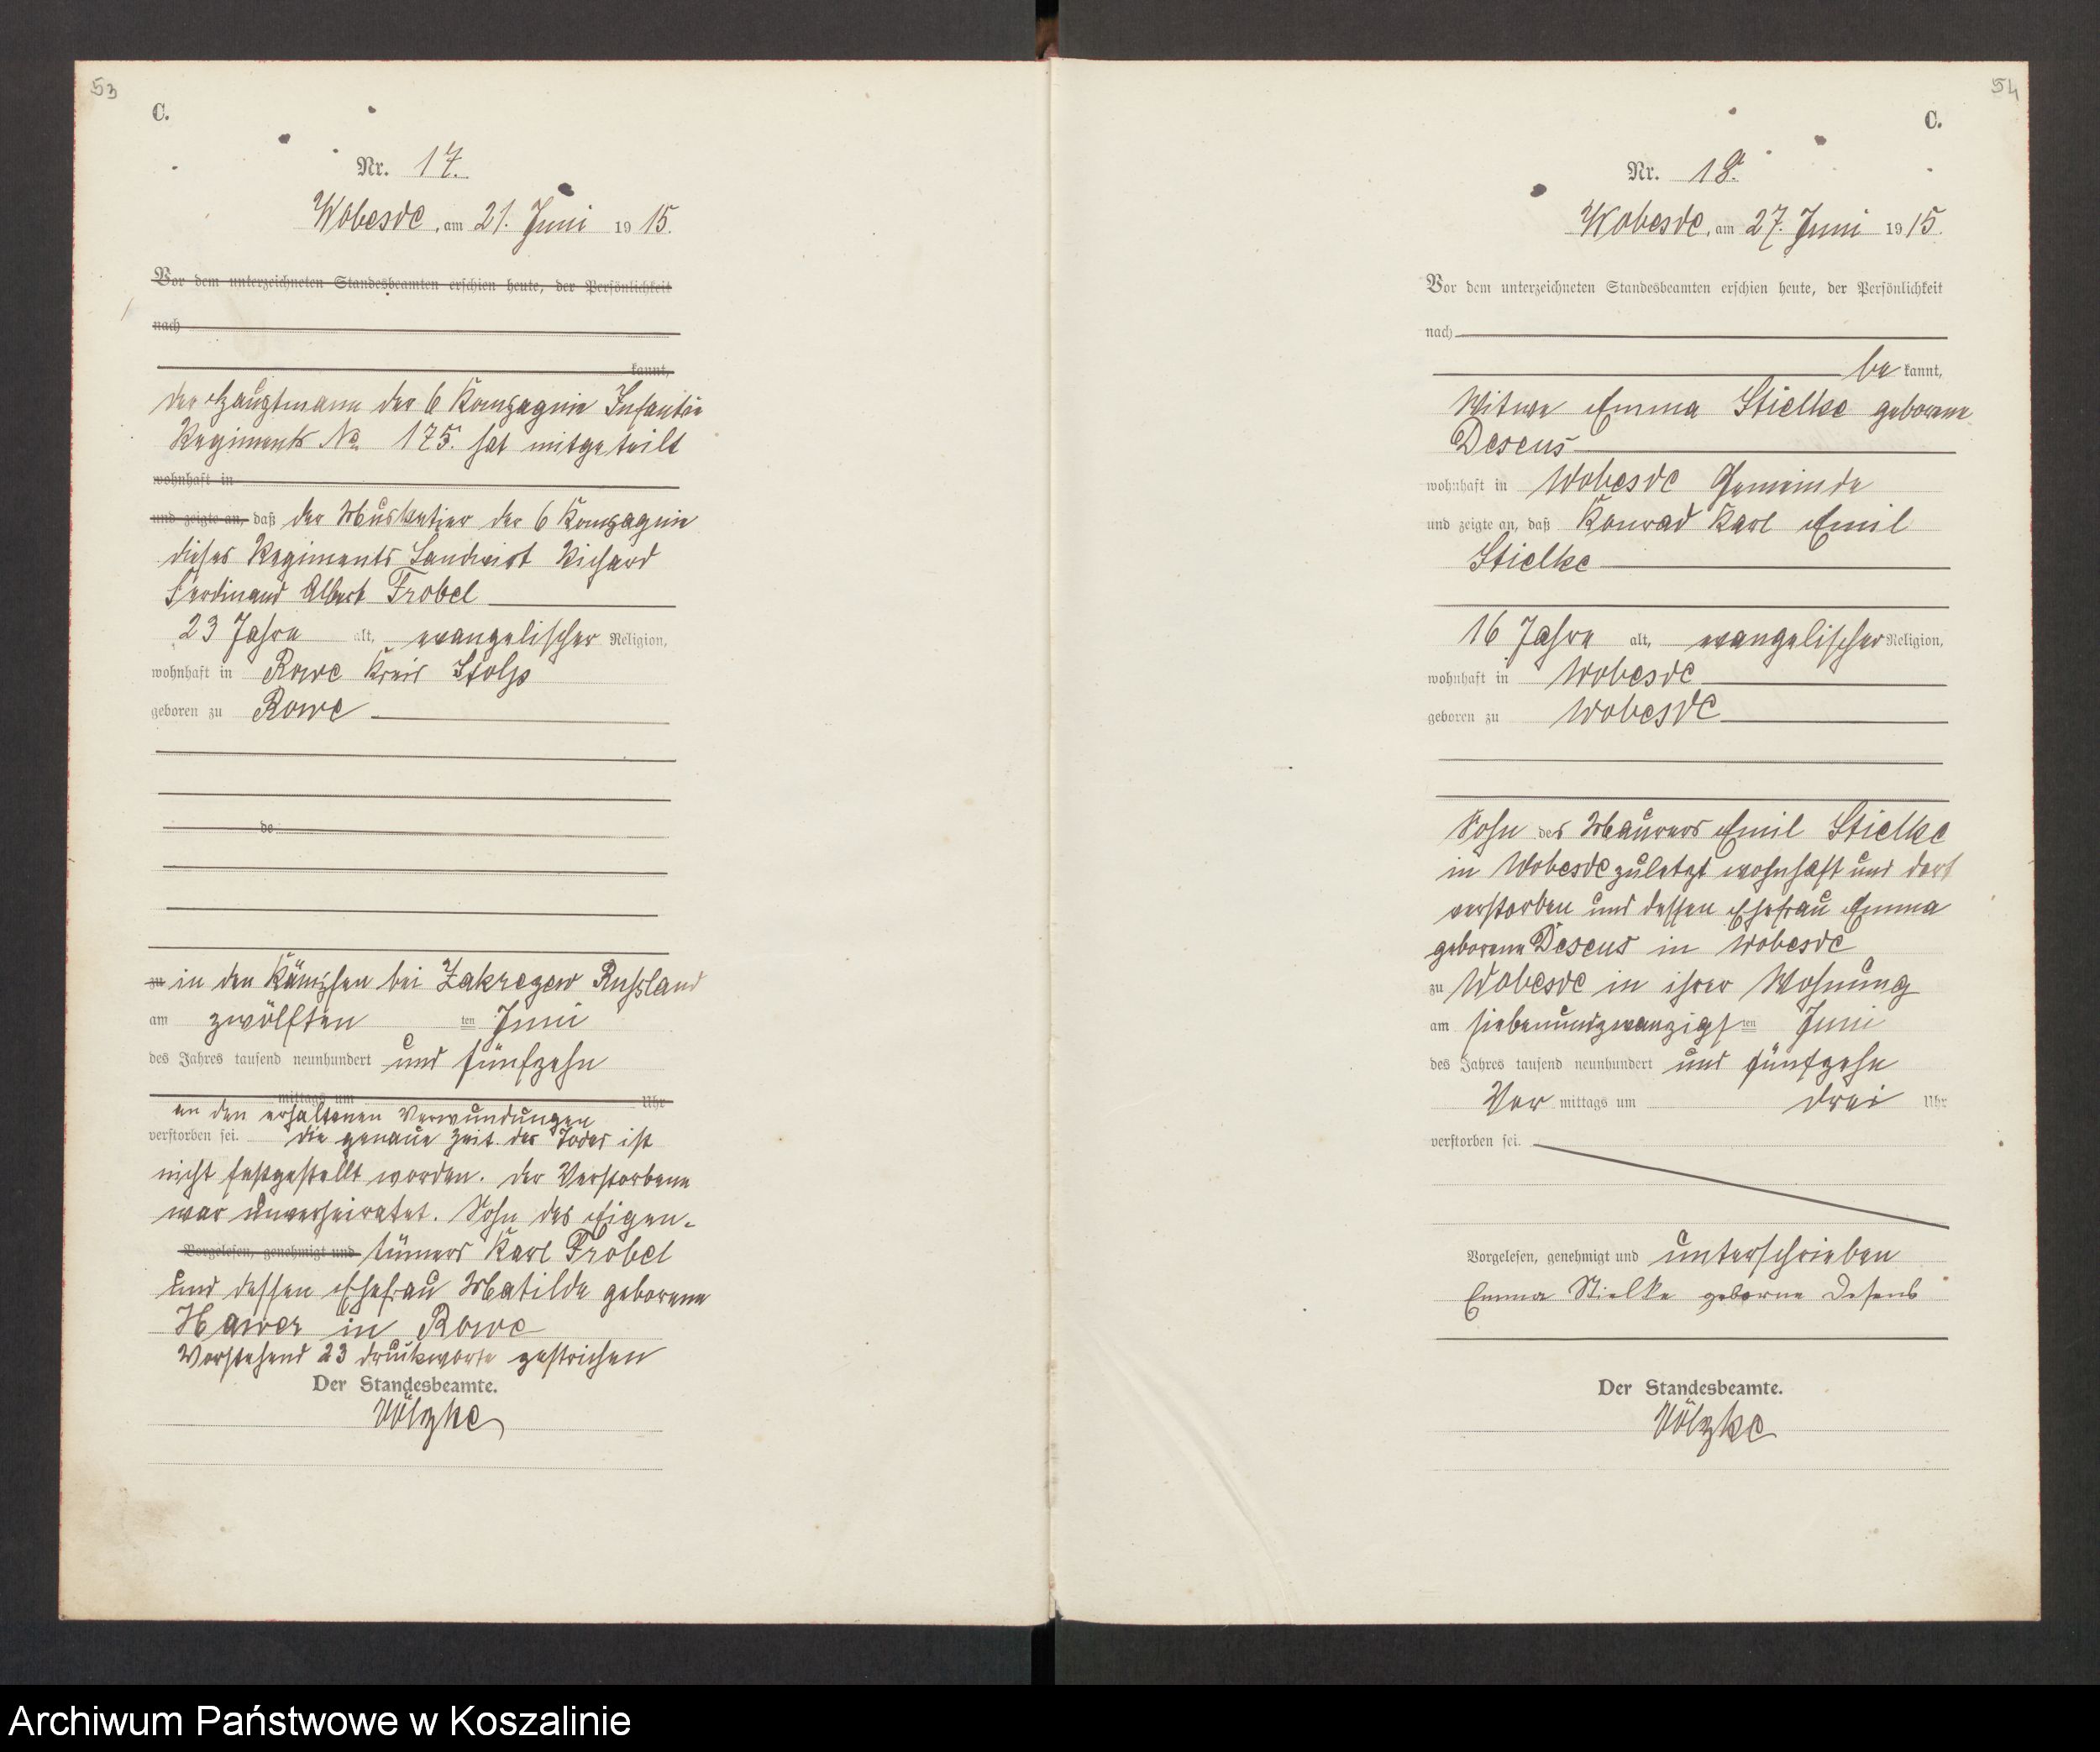 53
C.
Nr. 17.
Wobesde, am 21. Juni 1915.
Vor dem unterzeichneten Standesbeamten erschien heute, der Persönlichkeit
nach
kannt,
der Hauptmann der 6 Kompagnie Infanterie
Regiments No 175. hat mitgeteilt
wohnhaft in
und zeigte an, daß der Musketier der 6 Kompagnie
dieses Regiments Landwirt Richard
Ferdinand Albert Trobel
23 Jahre alt, evangelischer Religion,
wohnhaft in Rowe Kreis Stolp
geboren zu Rowe
de
zu in den Kämpfen bei Zakrezew Russland
am zwölften ten Juni
des Jahres tausend neunhundert und fünfzehn
mittags um Uhr
an den erhaltenen Verwundungen
verstorben sei. die genaue Zeit des Todes ist
nicht festgestellt worden. der Verstorbene
war unverheiratet. Sohn des Eigen-
Vorgelesen, genehmigt und tümers Karl Trobel
und dessen Ehefrau Matilde geborene
Hawer in Rowe
Vorstehend 23 druckworte gestrichen
Der Standesbeamte.
Völzke
54
C.
Nr. 18.
Wobesde, am 27. Juni 1915.
Vor dem unterzeichneten Standesbeamten erschien heute, der Persönlichkeit
nach
be kannt,
Witwe Emma Stielke geborene
Desens
wohnhaft in Wobesde Gemeinde
und zeigte an, daß Konrad Karl Emil
Stielke
16 Jahre alt, evangelischer Religion,
wohnhaft in Wobesde
geboren zu Wobesde
Sohn des Maurers Emil Stielke
in Wobesde zuletzt wohnhaft und dort
verstorben und dessen Ehefrau Emma
geborene Desens in Wobesde
zu Wobesde in ihrer Wohnung
am siebenundzwanzigsten Juni
des Jahres tausend neunhundert und fünfzehn
Vor mittags um drei Uhr
verstorben sei.
Vorgelesen, genehmigt und unterschrieben
Emma Stielke geborne Desens
Der Standesbeamte.
Völzke
Archiwum Państwowe w Koszalinie